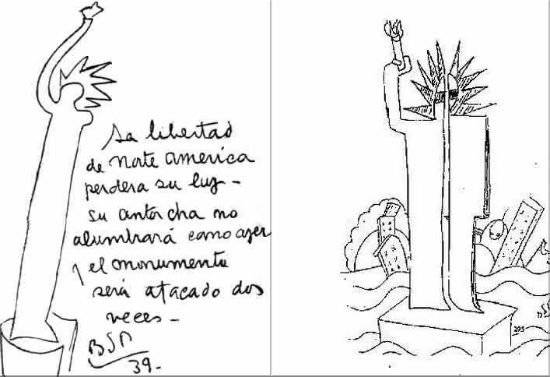 La libertad
de Norte America
perdera su luz -
su antorcha no
alumbrará como ayer
y el monumento
será atacado dos
veces -
BSP
39-